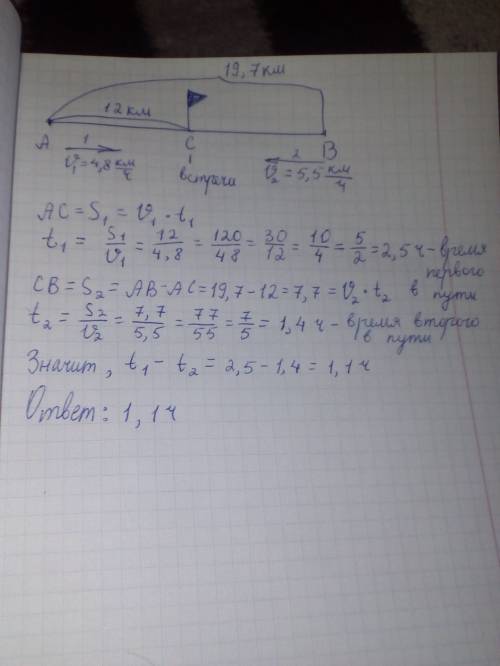 19,7 км
12 км
A 1 C 2 B
v₁=4,8 км/ч встреча v₂=5,5 км/ч
AC = S₁ = v₁ · t₁
t₁ = S₁/v₁ = 12/4,8 = 120/48 = 30/12 = 10/4 = 5/2 = 2,5 ч - время первого в пути
CB = S₂ = AB - AC = 19,7 - 12 = 7,7 = v₂ · t₂
t₂ = S₂/v₂ = 7,7/5,5 = 77/55 = 7/5 = 1,4 ч - время второго в пути
Значит, t₁ - t₂ = 2,5 - 1,4 = 1,1 ч
Ответ: 1,1 ч